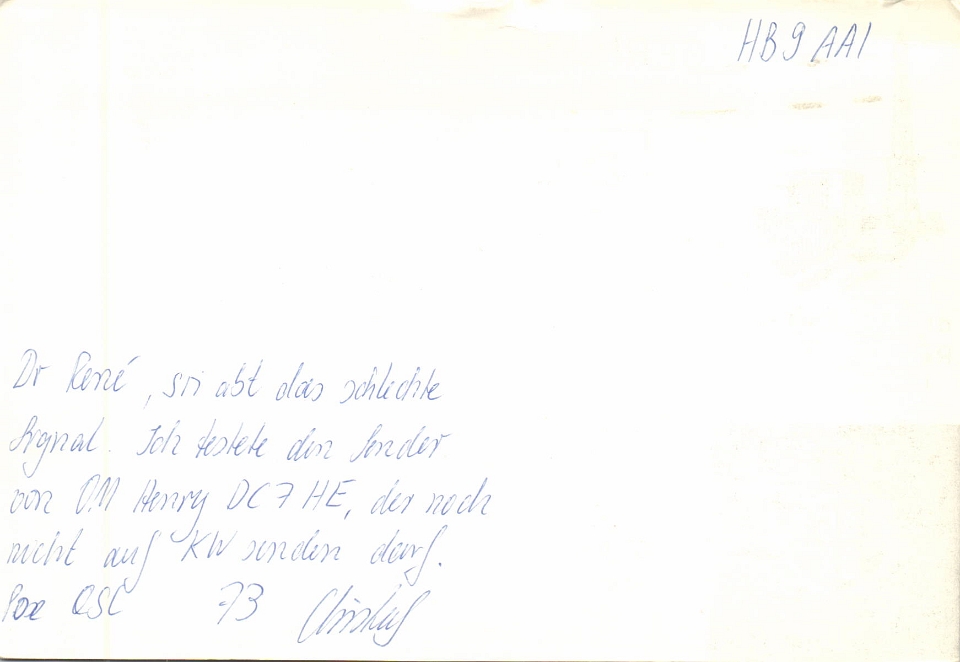 HB9AAI
Dr René, sri abt das schlechte
Signal. Ich testete den Sender
von OM Henry DC7HE, der noch
nicht auf KW senden darf.
Pse QSL 73